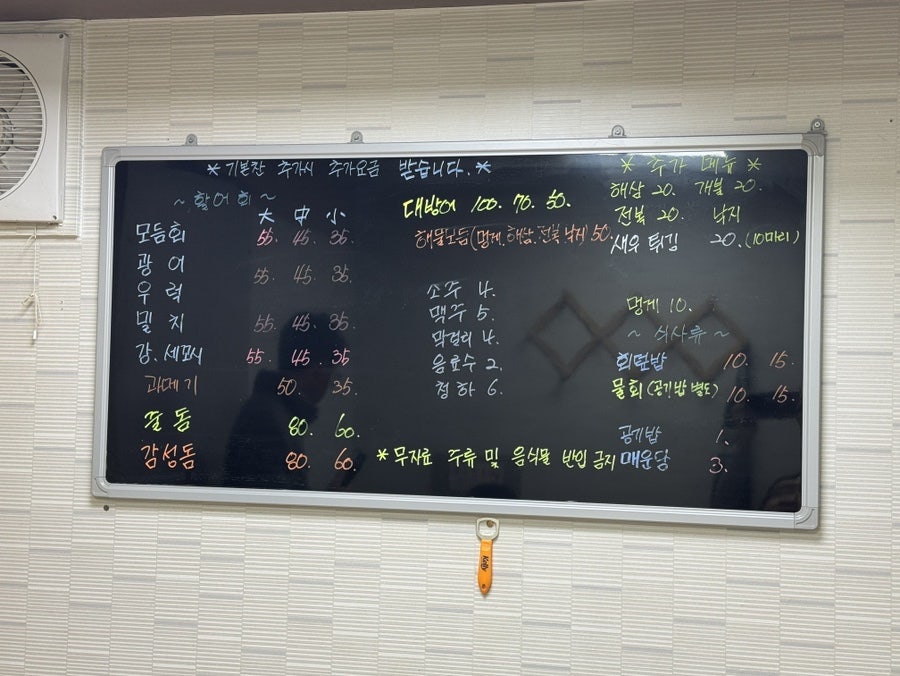 * 기본찬 추가시 추가요금 받습니다. *
~ 활어회 ~
大 中 小
모듬회 55. 45. 35.
광어
우럭 55. 45. 35.
밀치 55. 45. 35.
감. 세꼬시 55. 45. 35
과메기 50. 35.
줄돔 80. 60.
감성돔 80. 60.
대방어 100. 70. 50.
해물모듬(멍게. 해삼. 전복 낙지 50.
소주 4.
맥주 5.
막걸리 4.
음료수 2.
청하 6.
* 무자료 주류 및 음식물 반입 금지
* 추가 메뉴 *
해삼 20. 개불 20.
전복 20. 낙지
새우 튀김 20. (10마리)
멍게 10.
~ 식사류 ~
회덮밥 10. 15.
물회 (공기밥 별도) 10. 15.
공기밥 1.
매운탕 3.
Kelly